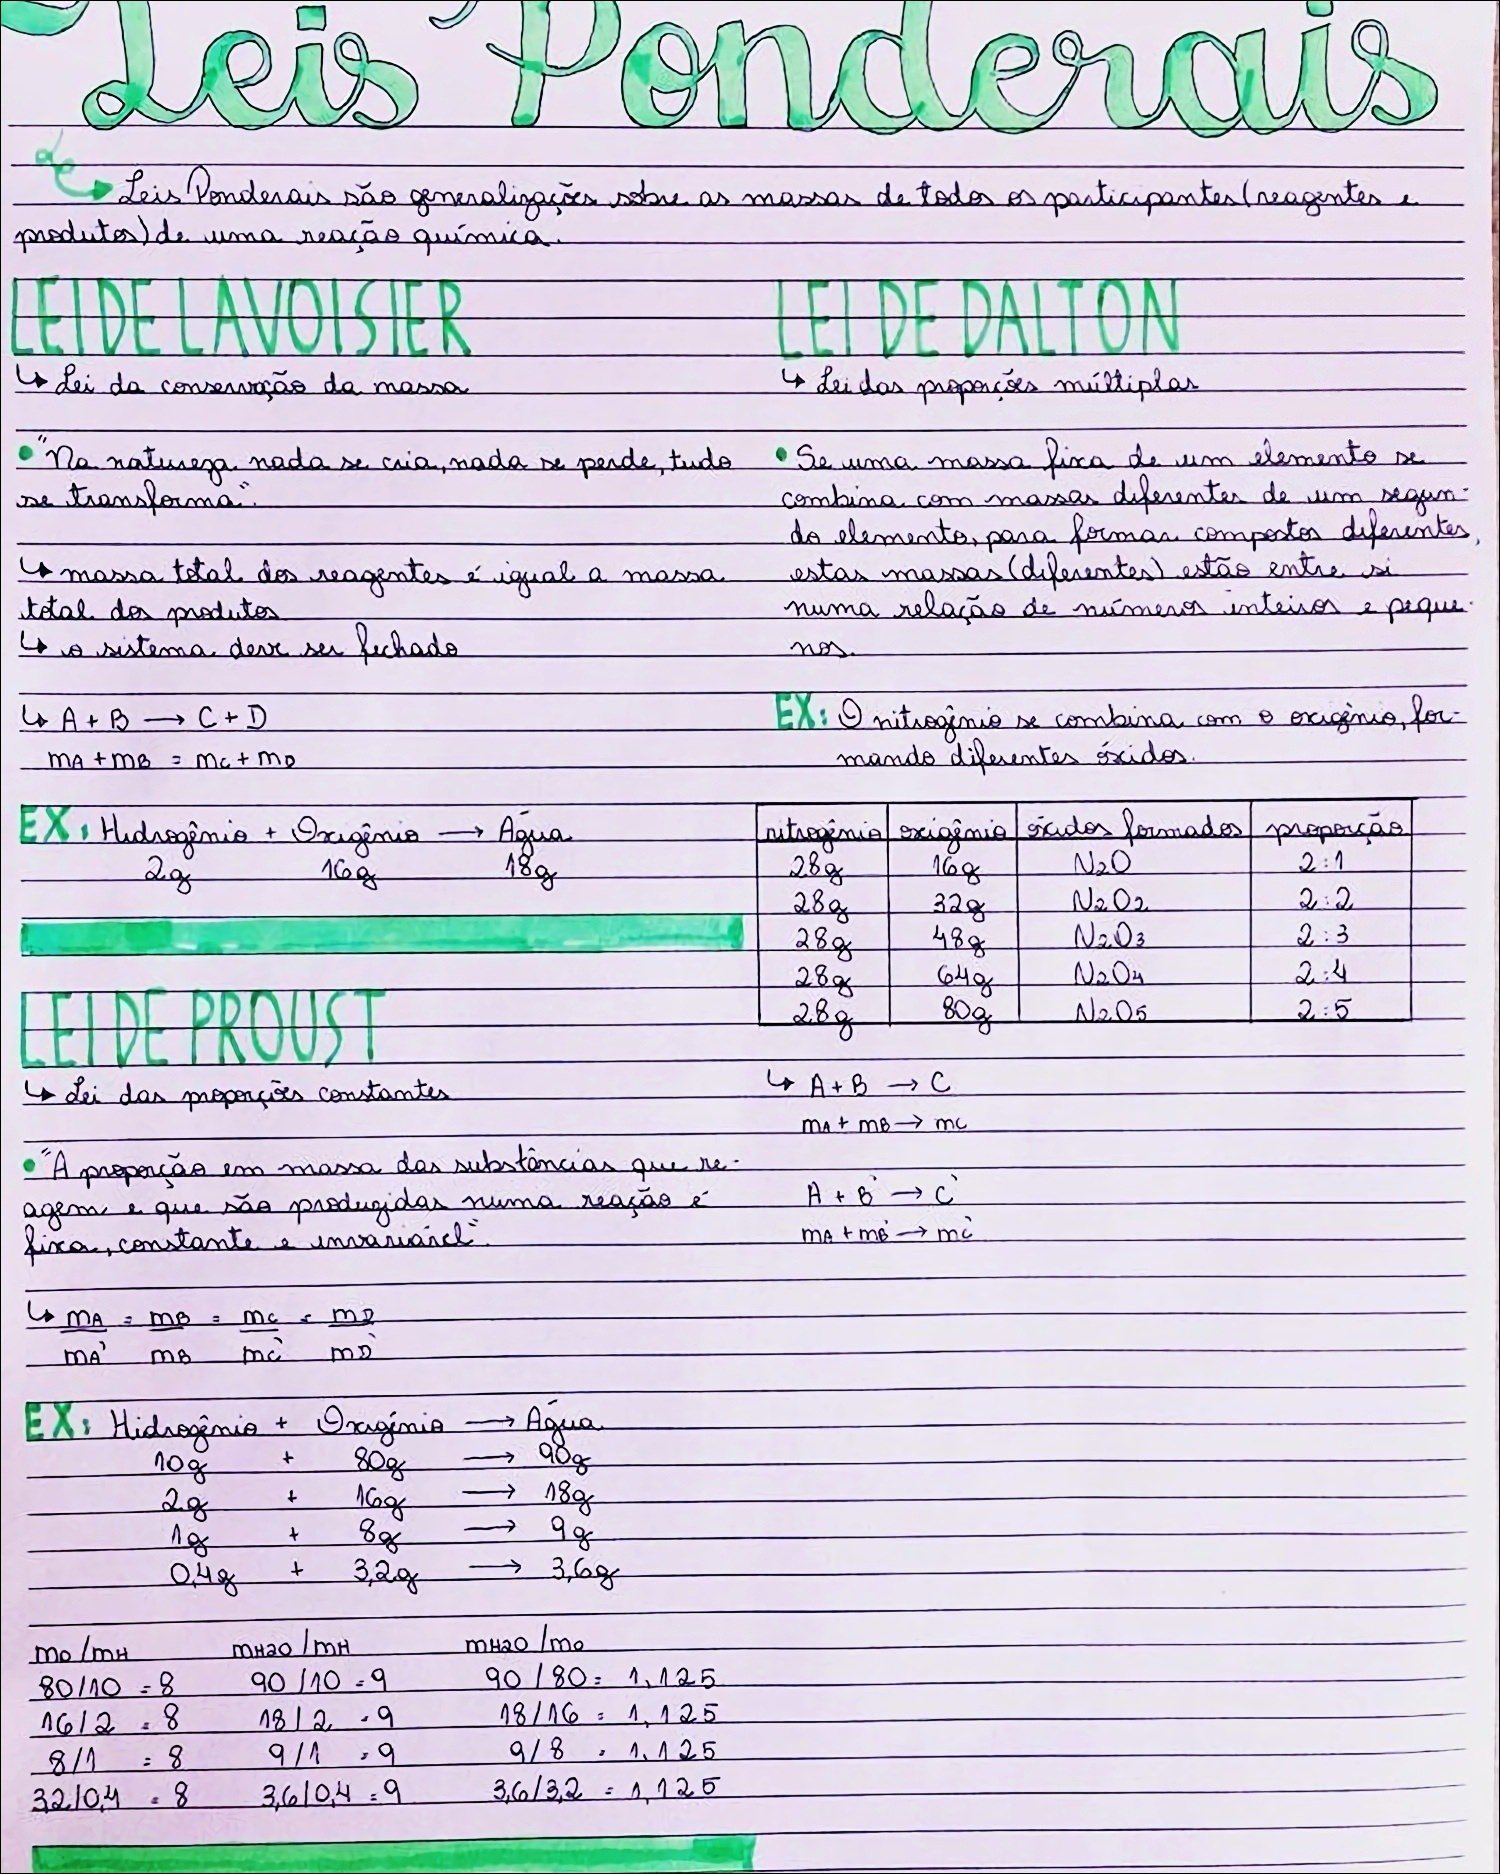 Leis Ponderais
Leis Ponderais são generalizações sobre as massas de todos os participantes (reagentes e
produtos) de uma reação química.
LEI DE LAVOISIER
↳ Lei da conservação da massa
• "Na natureza nada se cria, nada se perde, tudo
se transforma".
↳ massa total dos reagentes é igual a massa
total dos produtos
↳ o sistema deve ser fechado
↳ A + B → C + D
mA + mB = mC + mD
EX: Hidrogênio + Oxigênio → Água
2g 16g 18g
LEI DE PROUST
↳ Lei das proporções constantes
• "A proporção em massa das substâncias que re-
agem e que são produzidas numa reação é
fixa, constante e invariável".
↳ mA = mB = mC = mD
mA' mB mC' mD'
EX: Hidrogênio + Oxigênio → Água
10g + 80g → 90g
2g + 16g → 18g
1g + 8g → 9g
0,4g + 3,2g → 3,6g
mO/mH mH2O/mH mH2O/mO
80/10 = 8 90/10 = 9 90/80 = 1,125
16/2 = 8 18/2 = 9 18/16 = 1,125
8/1 = 8 9/1 = 9 9/8 = 1,125
3,2/0,4 = 8 3,6/0,4 = 9 3,6/3,2 = 1,125
LEI DE DALTON
↳ Lei das proporções múltiplas
• Se uma massa fixa de um elemento se
combina com massas diferentes de um segun-
do elemento, para formar compostos diferentes,
estas massas (diferentes) estão entre si
numa relação de números inteiros e peque-
nos.
EX: O nitrogênio se combina com o oxigênio, for-
mando diferentes óxidos.
nitrogênio oxigênio óxidos formados proporção
28g 16g N2O 2:1
28g 32g N2O2 2:2
28g 48g N2O3 2:3
28g 64g N2O4 2:4
28g 80g N2O5 2:5
↳ A + B → C
mA + mB → mC
A + B' → C'
mA + mB' → mC'